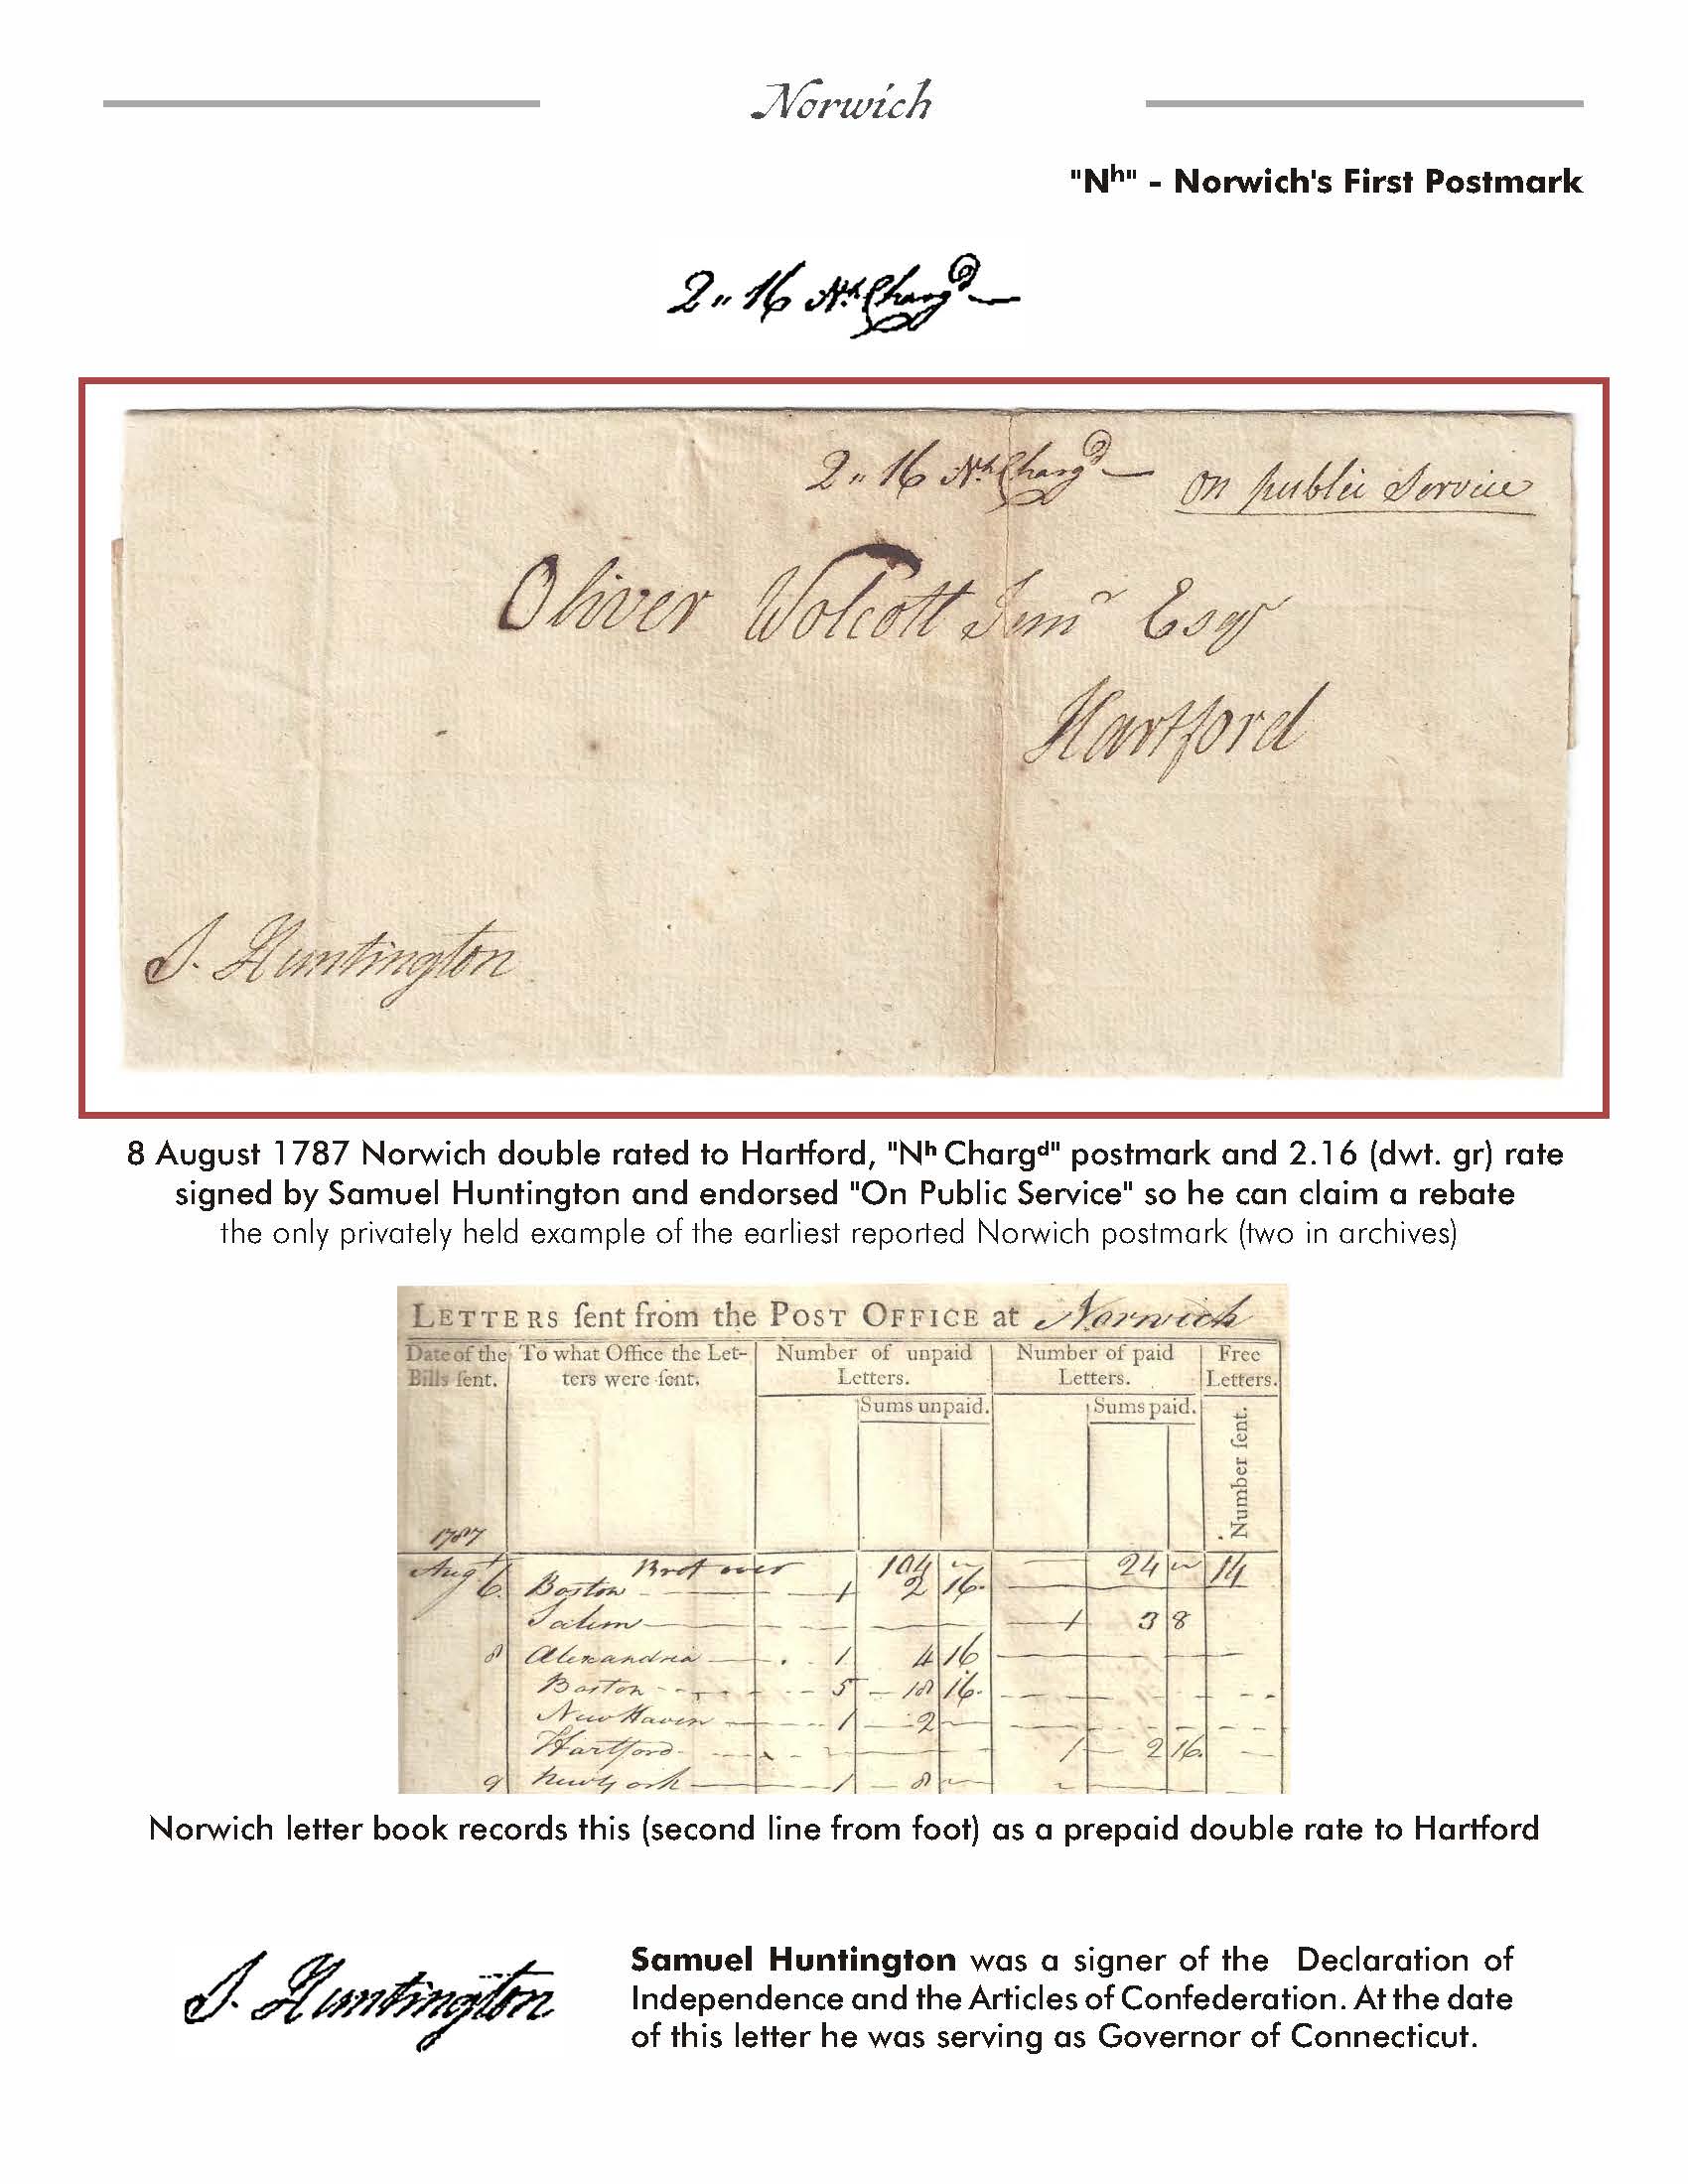 Norwich
"Nh" - Norwich's First Postmark
2 " 16 Nh Chargd
2 " 16 Nh Chargd on public Service
Oliver Wolcott Junr Esqr
Hartford
S. Huntington
8 August 1787 Norwich double rated to Hartford, "Nh Chargd" postmark and 2.16 (dwt. gr) rate
signed by Samuel Huntington and endorsed "On Public Service" so he can claim a rebate
the only privately held example of the earliest reported Norwich postmark (two in archives)
LETTERS ſent from the POST OFFICE at Norwich
Date of the Bills ſent. To what Office the Let-ters were ſent. Number of unpaid Letters. Number of paid Letters. Free Letters.
Sums unpaid. Sums paid. Number ſent.
1787
Brot over 104 24 14
Augt 6. Boston 1 2 16.
Salem 1 3 8
8 Alexandria 1 4 16
Boston 5 18 16.
New Haven 1 2
Hartford 1 2 16.
9 New York 1 8
Norwich letter book records this (second line from foot) as a prepaid double rate to Hartford
S. Huntington
Samuel Huntington was a signer of the Declaration of
Independence and the Articles of Confederation. At the date
of this letter he was serving as Governor of Connecticut.